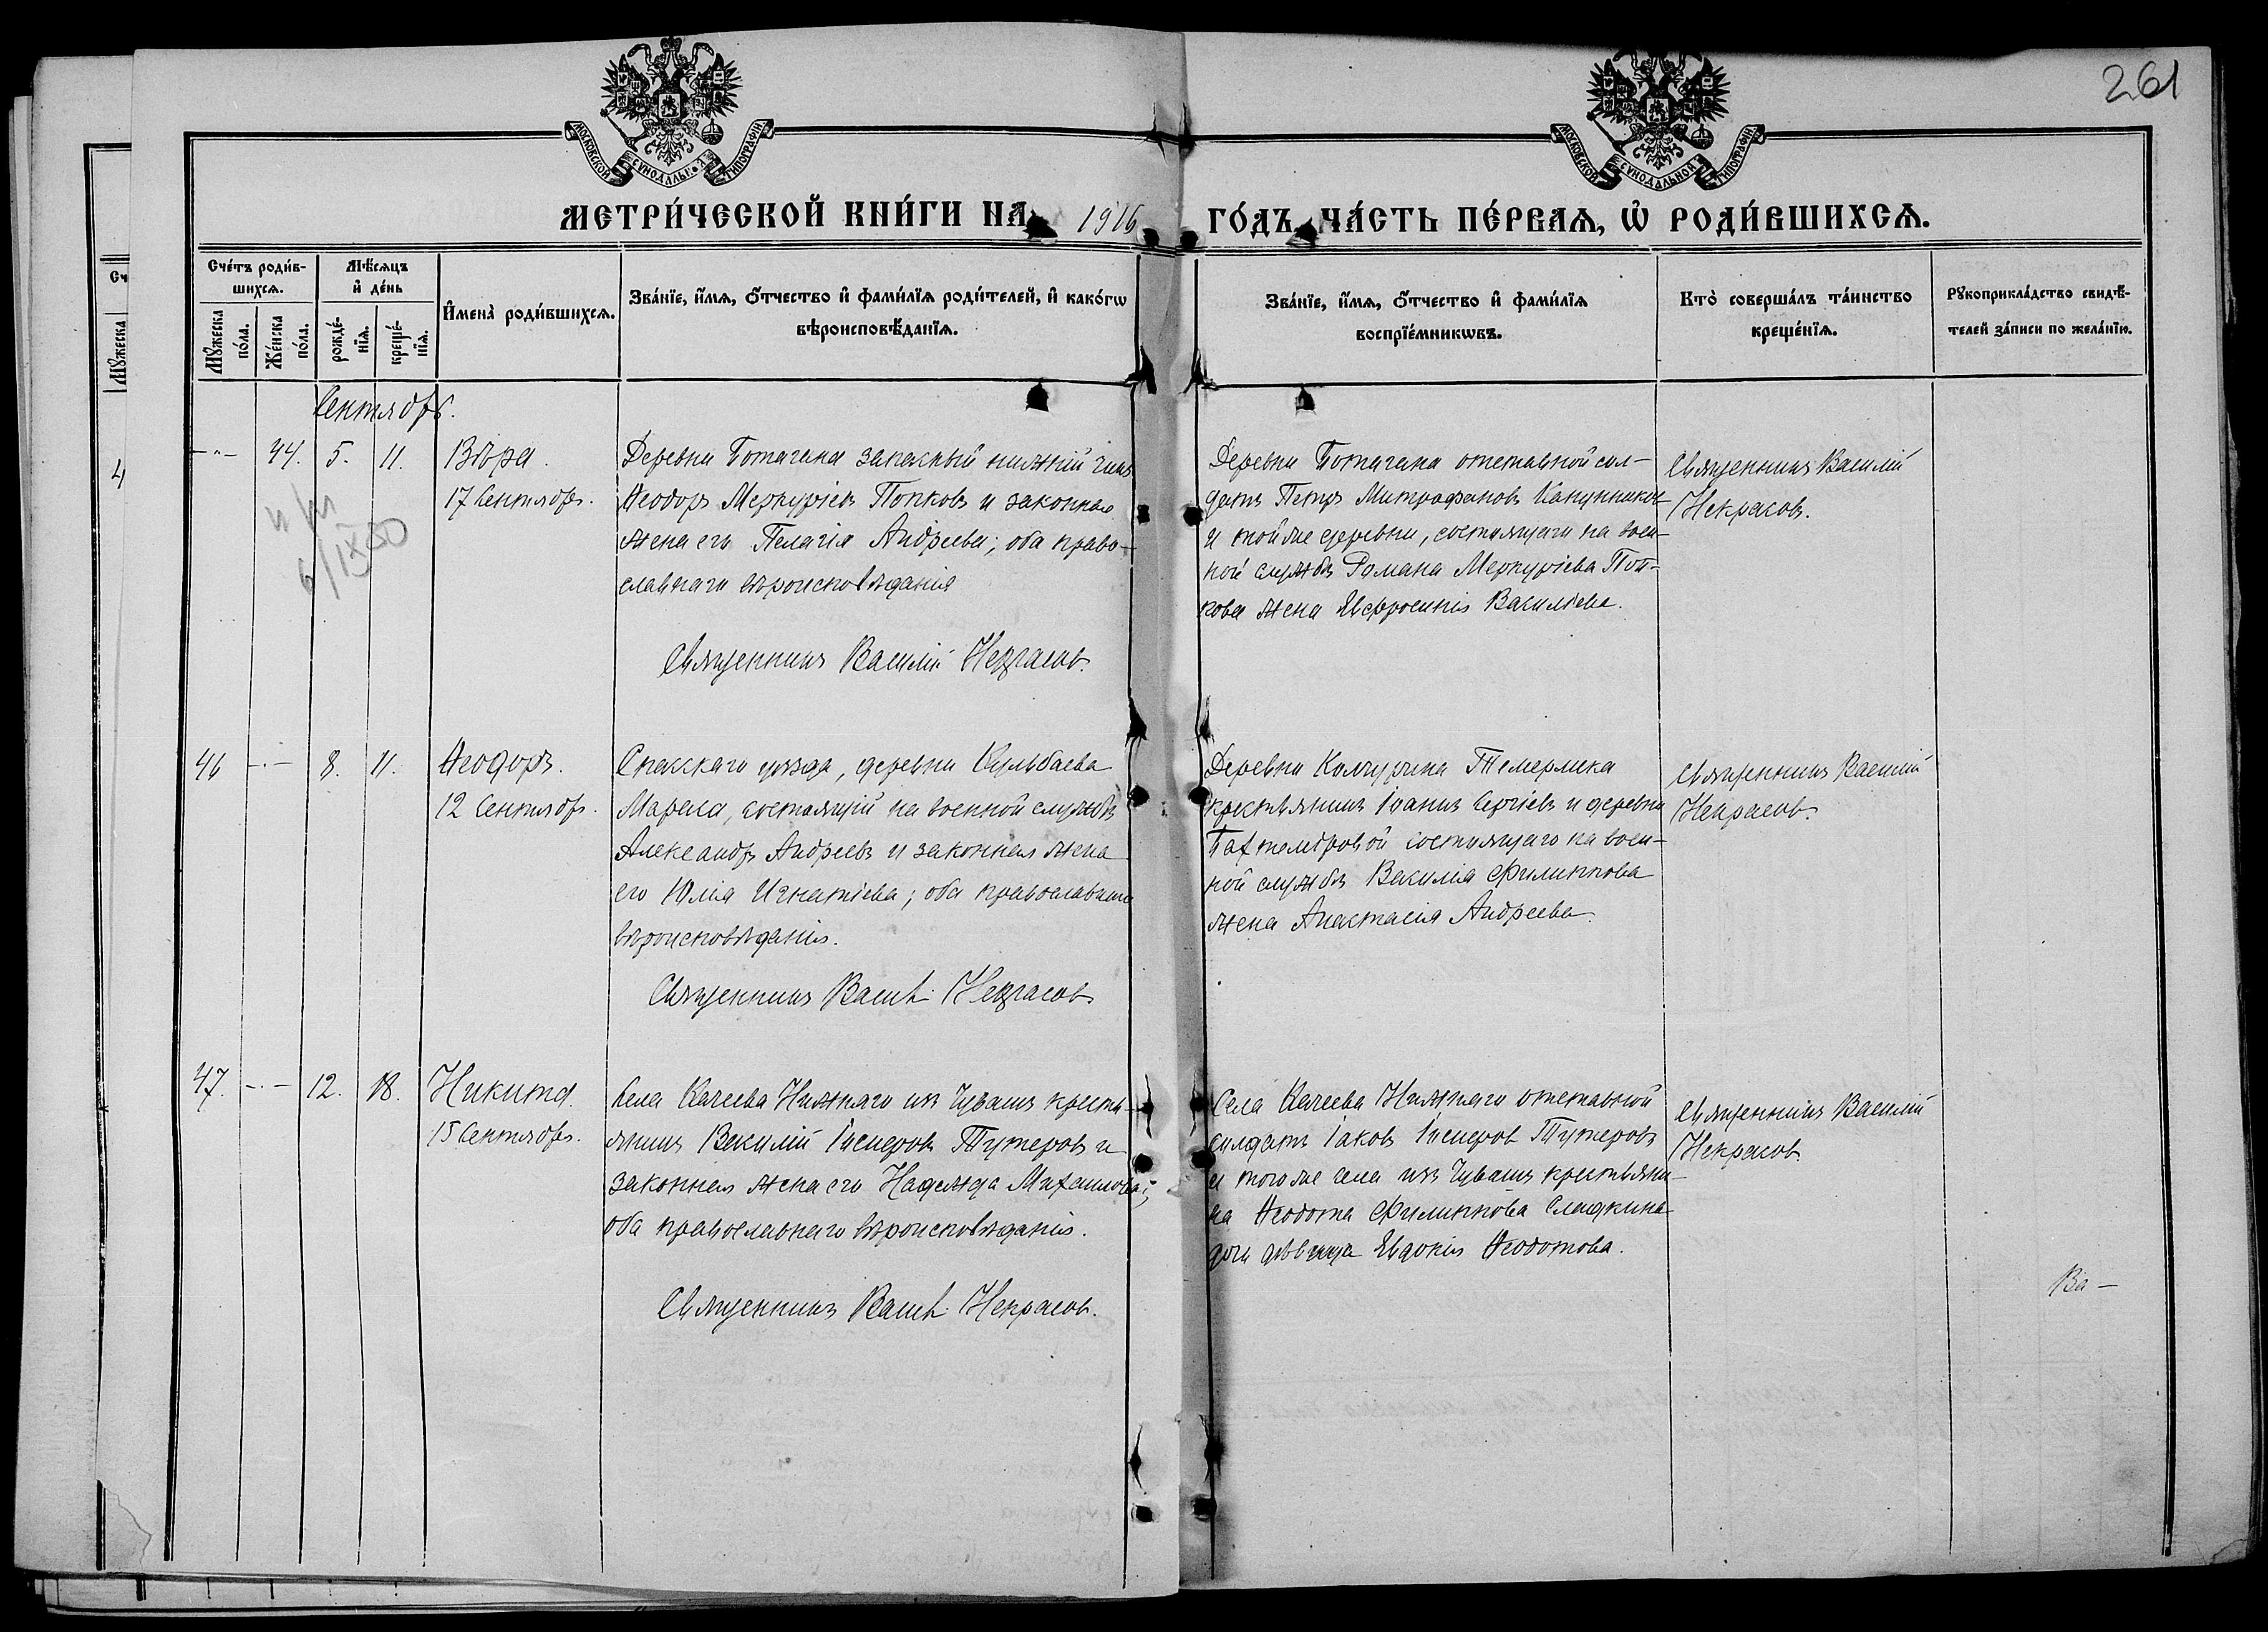 261
МОСКОВСКОЙ СѴНОДАЛЬНОЙ ТИПОГРАФІИ
МОСКОВСКОЙ СѴНОДАЛЬНОЙ ТИПОГРАФІИ
МЕТРИ́ЧЕСКОЙ КНИ́ГИ НА 1916 ГО́ДЪ, ЧА́СТЬ ПЕ́РВАЯ, Ѡ РОДИ́ВШИХСѦ.
Сче́тъ роди́в-
шихсѧ.
Мꙋ́жеска
по́ла.
Же́нска
по́ла.
Мѣ́сѧцъ
и҆ де́нь
рожде́-
нїѧ.
креще́-
нїѧ.
И҆мена̀ роди́вшихсѧ.
Зва́нїе, и҆́мѧ, ѻ҆́тчество и҆ фами́лїѧ роди́телей, и҆ како́гѡ
вѣроисповѣ́данїѧ.
Зва́нїе, и҆́мѧ, ѻ҆́тчество и҆ фами́лїѧ
воспрїе́мникѡвъ.
Кто̀ соверша́лъ та́инство
креще́нїѧ.
Рꙋкоприкла́дство свидѣ́-
телей за́писи по жела́нїю.
Сч
Мꙋжеска
4
Сентябрь.
-"- 44. 5. 11.
Вѣра.
17 Сентября.
6/IX 50
Деревни Ботагана запасный нижній чинъ
Ѳеодоръ Меркуріевъ Попковъ и законная
жена его Пелагія Андреева; оба право-
славнаго вѣроисповѣданія
Священникъ Василій Некрасовъ.
Деревни Ботагана отставной сол-
датъ Петръ Митрофановъ Канунников
и той же деревни, состоящаго на воен-
ной службѣ Романа Меркуріева Поп-
кова жена Евфросинія Василіева.
Священникъ Василій
Некрасовъ.
46 -"- 8. 11.
Ѳеодоръ.
12 Сентября.
Спасскаго уѣзда, деревни Кульбаева
Мараса, состоящій на военной службѣ
Александръ Андреевъ и законная жена
его Юлія Игнатіева; оба православнаго
вѣроисповѣданія.
Священникъ Васил. Некрасовъ
Деревни Качурина Темерлика
крестьянинъ Іоаннъ Сергіевъ и деревни
Бахтеміровой состоящаго на воен-
ной службѣ Василія Филиппова
жена Анастасія Андреева.
Священникъ Василій
Некрасовъ.
47. -"- 12. 18.
Никита.
15 Сентября.
Села Качеева Нижняго изъ Чувашъ кресть-
янинъ Василій Тутеровъ и
законная жена его Надежда Михаилова;
оба православнаго вѣроисповѣданія.
Священникъ Васил. Некрасовъ.
Села Качеева Нижняго отставной
солдатъ Іаковъ Тутеровъ
и того же села изъ Чувашъ крестьяни-
на Ѳеодота Филиппова Сладкина
дочь дѣвица Евдокія Ѳеодотова.
Священникъ Василій
Некрасовъ.
Ва-